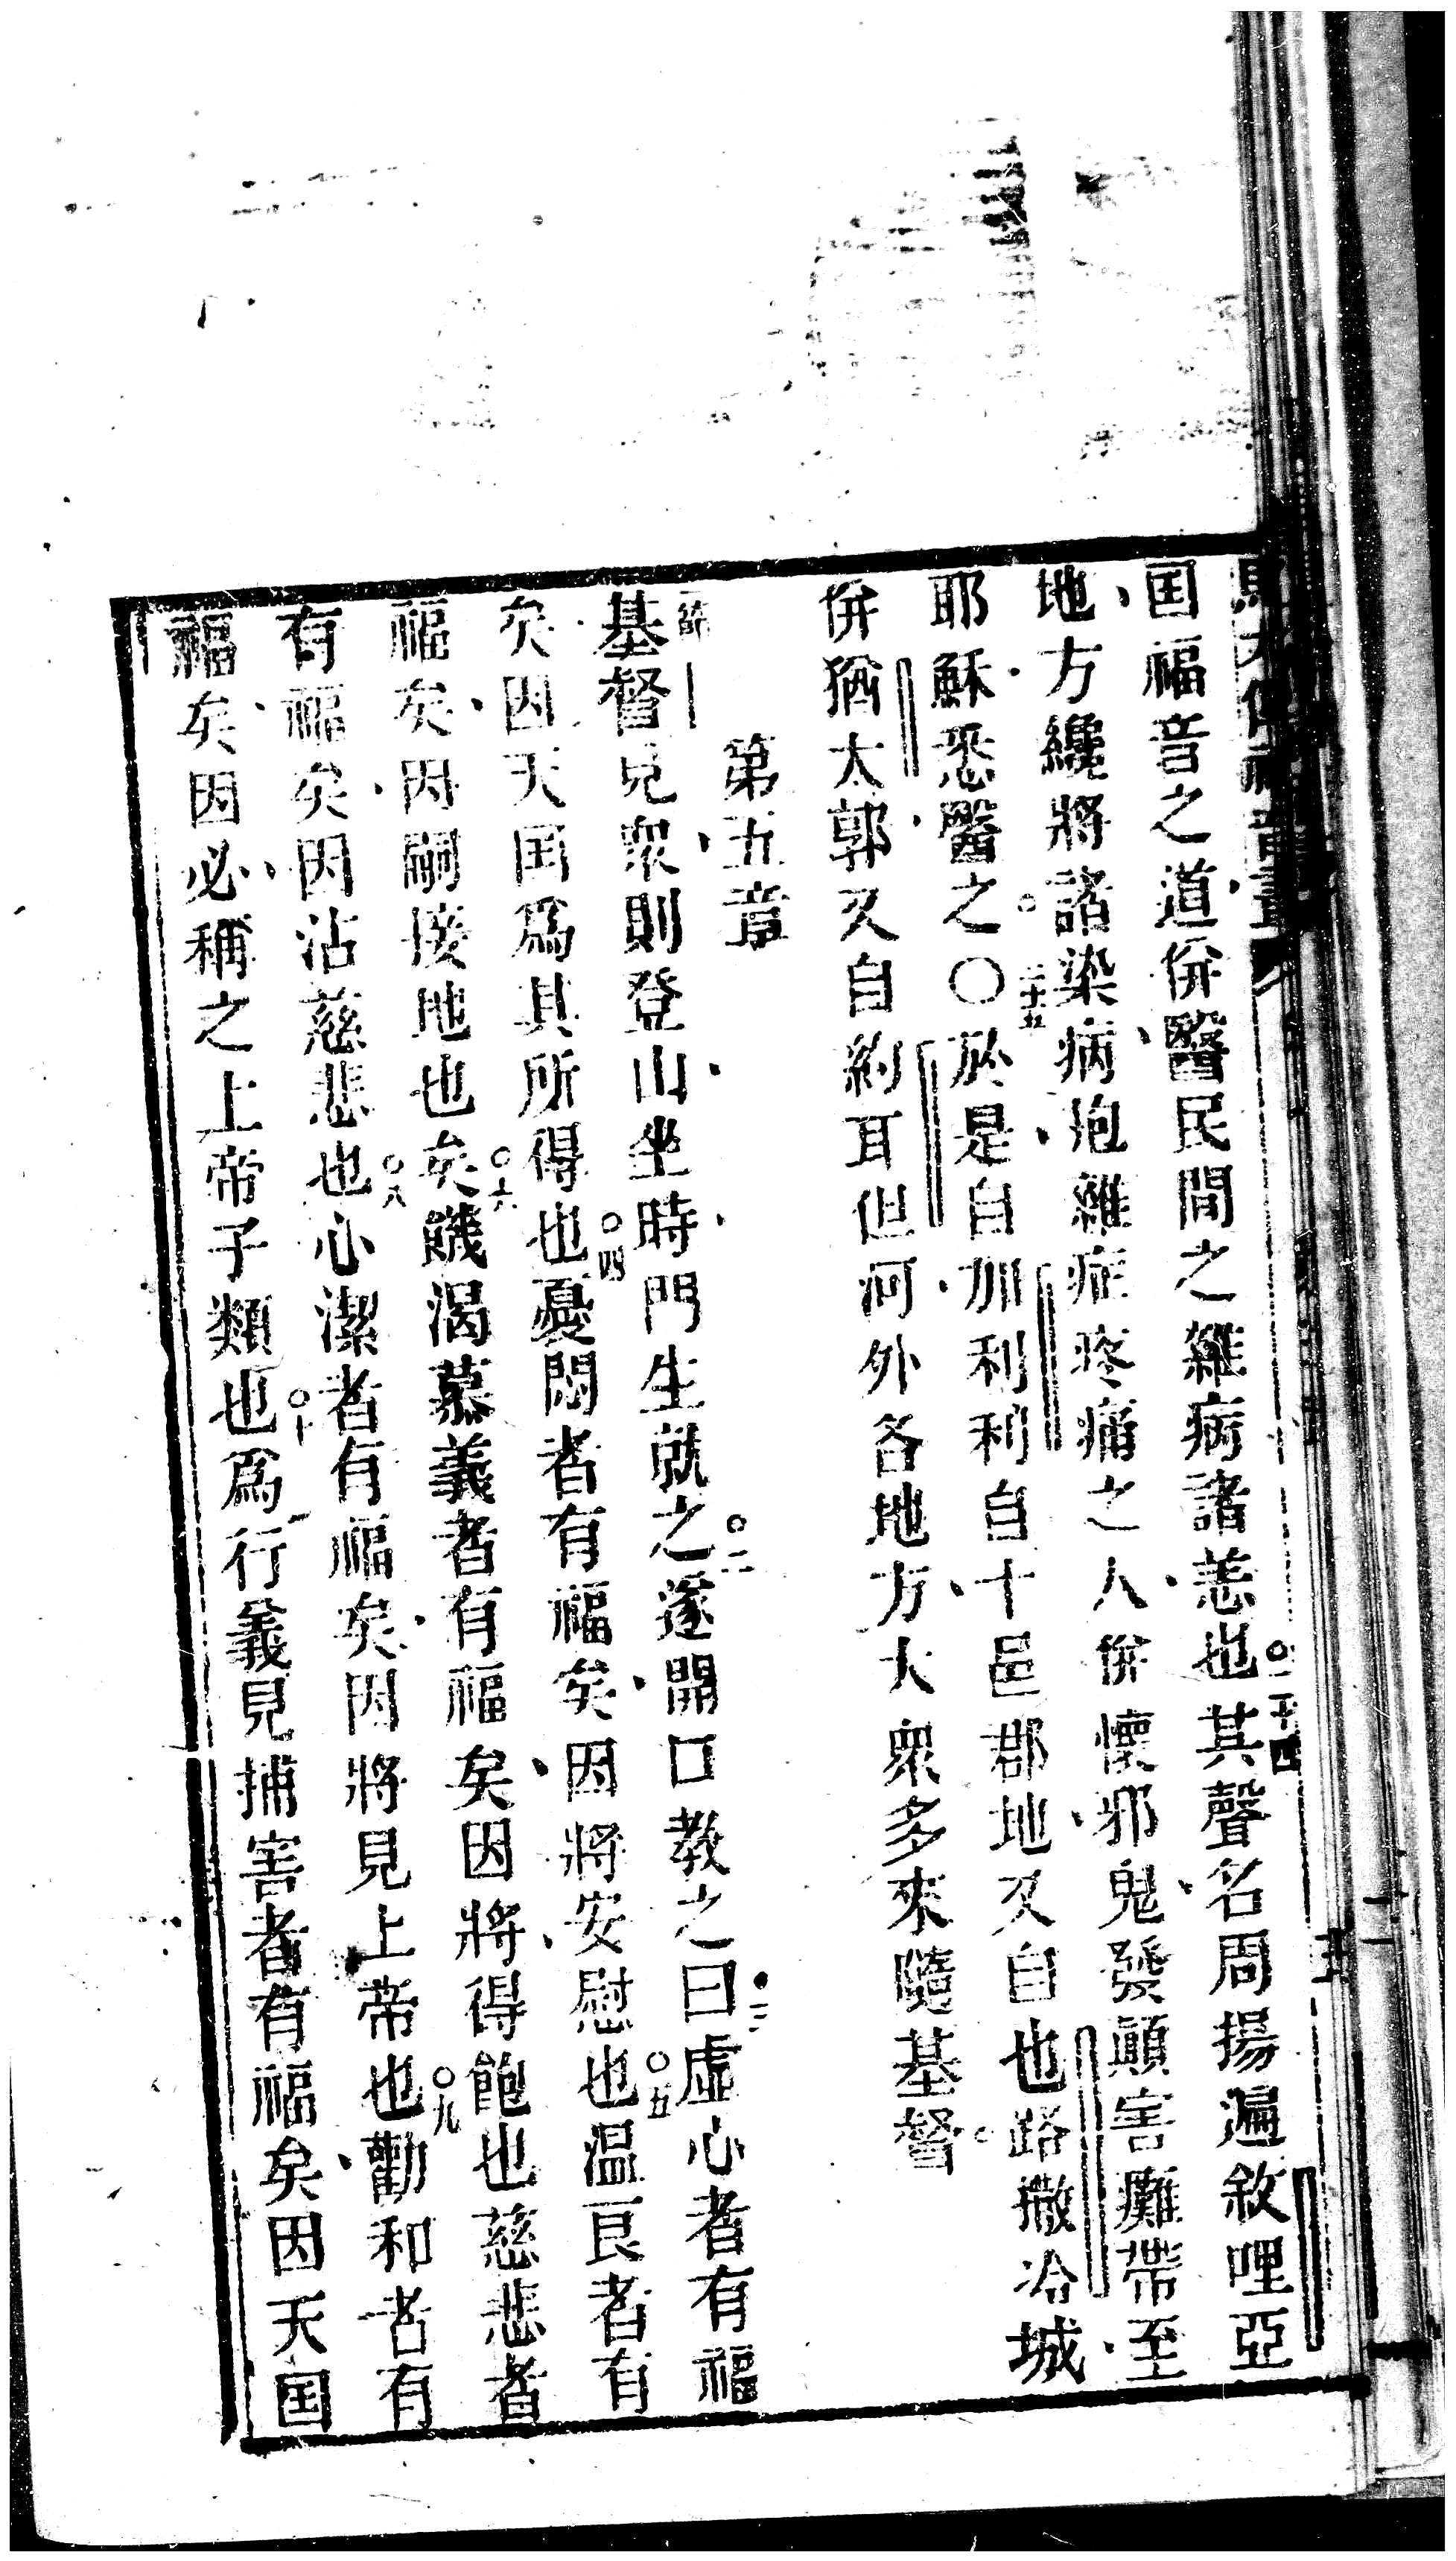 国福音之道併醫民間之雜病諸恙也○二十四其聲名周揚遍敘哩亞
地方纔將諸染病抱雜症疼痛之人併懷邪鬼發顛害癱帶至
耶穌悉醫之○二十五於是自加利利自十邑郡地及自也路撒冷城
併猶太郭及自約耳但河外各地方大衆多來隨基督
第五章
一節
基督見衆則登山坐時門生就之○二遂開口教之曰三虛心者有福
矣因天国爲其所得也○四憂悶者有福矣因將安慰也○五温良者有
福矣因嗣接地也矣○六饑渴慕義者有福矣因將得飽也慈悲者
有福矣因沾慈悲也○八心潔者有福矣因將見上帝也○九勸和者有
福矣因必稱之上帝子類也○十爲行義見捕害者有福矣因天国
五